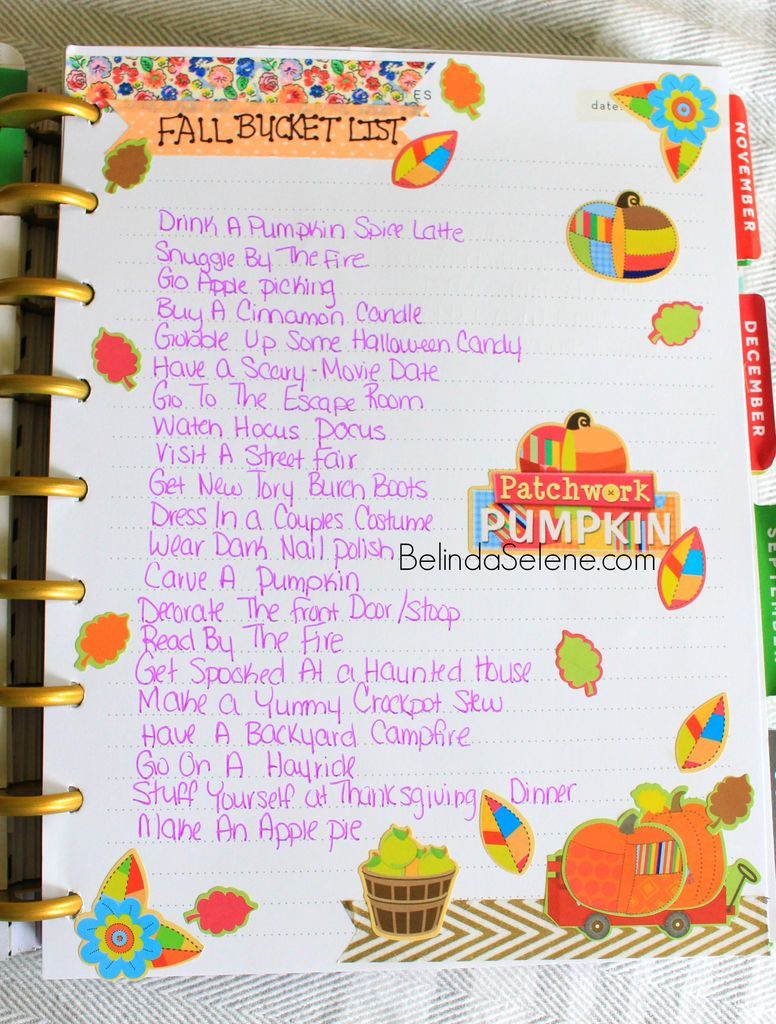 ES
date:
FALL BUCKET LIST
NOVEMBER
Drink A Pumpkin Spice Latte
Snuggle By The Fire
Go Apple picking
Buy A Cinnamon Candle
Gobble Up Some Halloween Candy
Have a Scary-Movie Date
Go To The Escape Room
DECEMBER
Watch Hocus Pocus
Visit A Street Fair
Get New Tory Burch Boots
Patchwork
PUMPKIN
Dress In a Couples Costume
Wear Dark Nail polish
BelindaSelene.com
Carve A Pumpkin
Decorate The front Door/stoop
Read By The Fire
Get Spooked At a Haunted House
Make a Yummy Crockpot Stew
Have A Backyard Campfire
Go On A Hayride
Stuff Yourself at Thanksgiving Dinner
Make An Apple pie